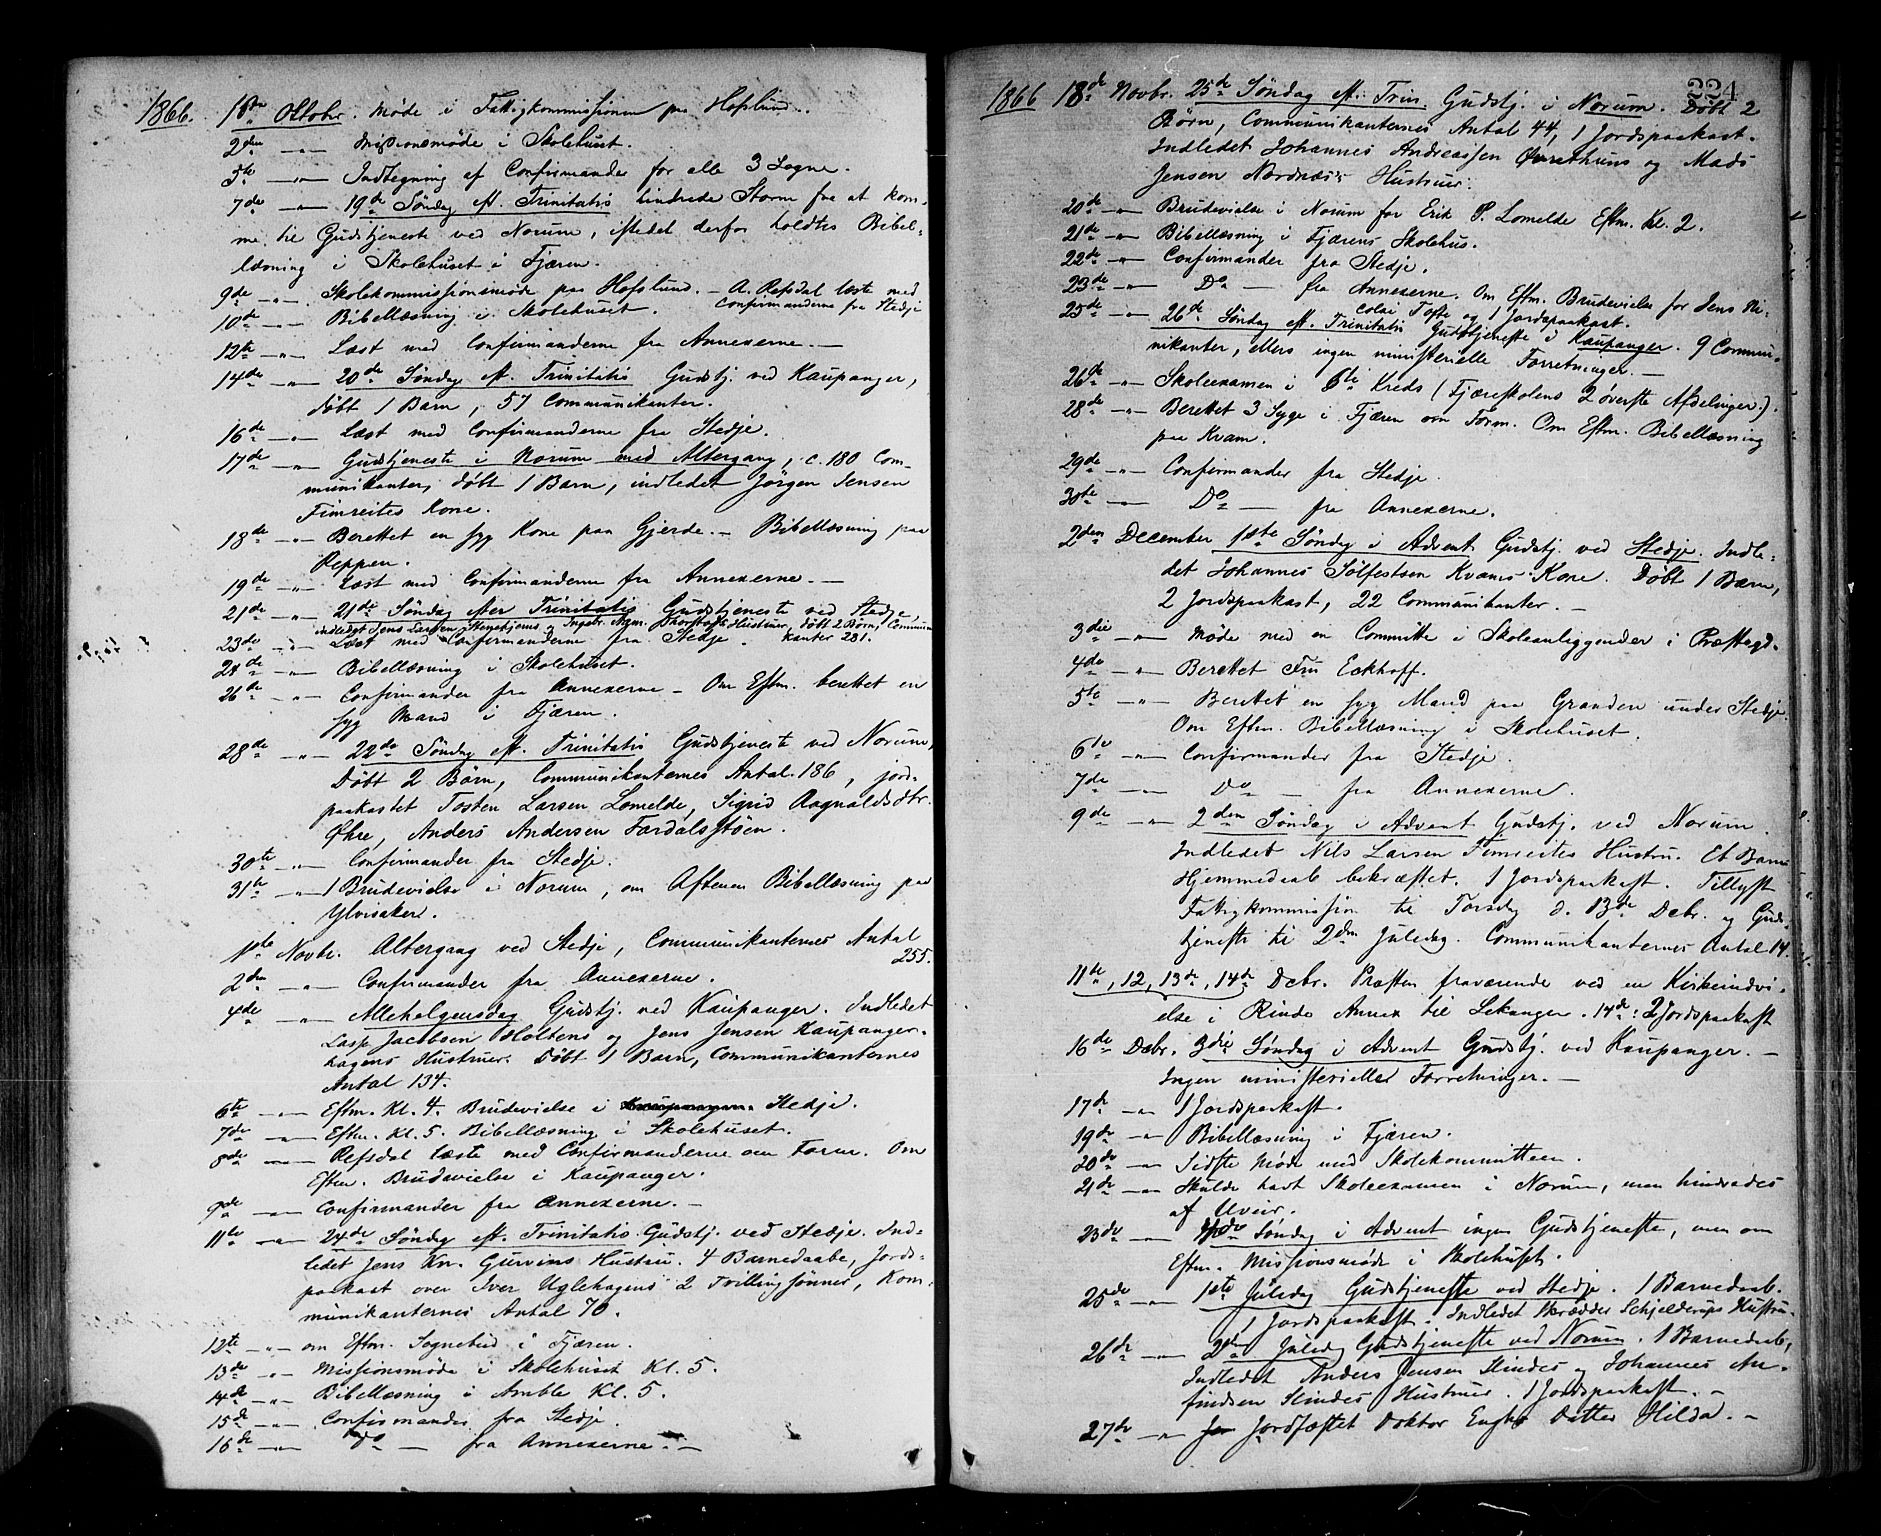 1866. 1ste Oktobr. Møde i Fattigkommissionen paa Hofslund.
2den —"— Missionsmøde i Skolehuset.
5te —"— Indtegning af Confirmander for alle 3 Sogne.
7de —"— 19de Søndag eft. Trinitatis hindrede Storm fra at kom-
me til Gudstjeneste ved Norum, istedet derfor holdtes Bibel-
læsning i Skolehuset i Fjæren.
9de —"— Skolekommissionsmøde paa Hofslund. — A. Refsdal læste med
Confirmanderne fra Stedje
10de —"— Bibellæsning i Skolehuset.
12te —"— Læst med Confirmanderne fra Annexerne. —
14de —"— 20de Søndag eft. Trinitatis Gudstj. ved Kaupanger,
døbt 1 Barn, 57 Communikanter.
16de —"— Læst med Confirmanderne fra Stedje.
17de —"— Gudstjeneste i Norum med Altergang, c. 180 Com-
munikanter, døbt 1 Barn, indledet Jörgen Jensen
Fimreites Kone.
18de —"— Berettet en syg Kone paa Gjerde. — Bibellæsning paa
Reppen.
19de —"— Læst med Confirmanderne fra Annexerne. —
21de —"— 21de Søndag efter Trinitatis Gudstjeneste ved Stedje,
indledet Jens Larsen og Ingebr. Hustruer, døbt 2 Børn, Communi-
kanter 281.
23de —"— Læst med Confirmanderne fra Stedje.
24de —"— Bibellæsning i Skolehuset.
26de —"— Confirmander fra Annexerne — Om Eftm. berettet en
syg Mand i Fjæren.
28de —"— 22de Søndag eft. Trinitatis Gudstjeneste ved Norum,
Døbt 2 Børn, Communikanternes Antal 186, jord-
paakastet Tosten Larsen Lomelde, Sigrid Ragnaldsdtr.
Øhre, Anders Andersen Færdalsstøen.
30te —"— Confirmander fra Stedje.
31te —"— 1 Brudevielse i Norum, om Aftenen Bibellæsning paa
Ylvisaker.
1ste Novbr. Altergang ved Stedje, Communikanternes Antal
255.
2den —"— Confirmander fra Annexerne.
4de —"— Allehelgensdag Gudstj. ved Kaupanger. Indledet
Lasse Jacobsen Holtens og Jens Jensen Kaupanger-
hagens Hustruer. Døbt 1 Barn, Communikanternes
Antal 134.
6te —"— Eftm. Kl. 4. Brudevielse i Kaupanger. Stedje.
7de —"— Eftm. Kl. 5. Bibellæsning i Skolehuset.
8de —"— Refsdal læste med Confirmanderne om Form. Om
Eftm. Brudevielse i Kaupanger.
9de —"— Confirmander fra Annexerne. —
11te —"— 24de Søndag eft. Trinitatis Gudstj. ved Stedje. Ind-
ledet Jens Kn. Gurvins Hustru. 4 Barnedaabe, Jords-
paakast over Iver Uglehagens 2 Tvillingsønner, Kom-
munikanternes Antal 70.
12te —"— om Eftm. Sognebud i Fjæren.
13de —"— Missionsmøde i Skolehuset Kl. 5.
14de —"— Bibellæsning i Amble Kl. 5.
15de —"— Confirmander fra Stedje.
16de —"— Do — fra Annexerne. —
224
1866 18de Novbr. 25de Søndag eft. Trin. Gudstj. i Norum. Døbt 2
Børn, Communikanternes Antal 44, 1 Jordspaakast.
Indledet Johannes Andreassen Øvrethuns og Mads
Jensen Nordnæs's Hustruer.
20de —"— Brudevielse i Norum for Erik P. Lomelde Eftm. Kl. 2.
21de —"— Bibellæsning i Fjærens Skolehus.
22de —"— Confirmander fra Stedje.
23de —"— Do — fra Annexerne. Om Eftm. Brudevielse for Jens Ni-
colai Tofte og 1 Jordspaakast.
25de —"— 26de Søndag eft. Trinitatis Gudstjeneste i Kaupanger. 9 Commu-
nikanter, ellers ingen ministerielle Forretninger. —
26de —"— Skoleexamen i 6te Kreds (Fjæreskolens 2 øverste Afdelinger).
28de —"— Berettet 3 Syge i Fjæren om Form. Om Eftm. Bibellæsning
paa Kvam.
29de —"— Confirmander fra Stedje.
30te —"— Do — fra Annexerne.
2den December 1ste Søndag i Advent Gudstj. ved Stedje. Indle-
det Johannes Sølfestsen Kvams Kone. Døbt 1 Barn,
2 Jordspaakast, 22 Communikanter. —
3die —"— Møde med en Committe i Skoleanliggender i Præstegd.
4de —"— Berettet Fru Eckhoff.
5te —"— Berettet en syg Mand paa Granden under Stedje.
Om Eftm. Bibellæsning i Skolehuset.
6te —"— Confirmander fra Stedje.
7de —"— Do — fra Annexerne.
9de —"— 2den Søndag i Advent Gudstj. ved Norum.
Indledet Nils Larsen Fimreites Hustru. Et Barns
Hjemmedaab bekræftet. 1 Jordspaakast. Tillyst
Fattigkommission til Torsdag d. 13de Decbr. og Guds-
tjeneste til 2den Juledag. Communikanternes Antal 14.
11te, 12, 13de, 14de Decbr. Præsten fraværende ved en Kirkeindvi-
else i Rinde Annex til Lekanger. 14de: 2 Jordspaakast
16de Decbr. 3die Søndag i Advent Gudstj. ved Kaupanger. —
Ingen ministerielle Forretninger. —
17de —"— 1 Jordspaakast.
19de —"— Bibellæsning i Fjæren.
20de —"— Sidste Møde med Skolekommitteen.
21de —"— Skulde havt Skoleexamen i Norum, men hindredes
af Uveir.
23de —"— 4de Søndag i Advent ingen Gudstjeneste, men om
Eftm. Missionsmøde i Skolehuset.
25de —"— 1ste Juledag Gudstjeneste ved Stedje. 1 Barnedaab.
1 Jordspaakast. Indledet Skrædder Schjelderups Hustru.
26de —"— 2den Juledag Gudstjeneste ved Norum. 1 Barnedaab,
Indledet Anders Jensen Slindes og Johannes An-
findsen Slindes Hustruer. 1 Jordspaakast. —
27de —"— Jor Jordfæstet Doktor Enghs Datter Hilda. —